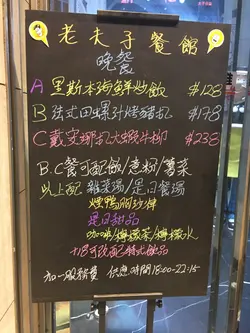 老夫子餐館
晚餐
A 墨斯本海鮮炒飯 $128
B 法式田螺汁燒豬扒 $178
C 戴安娜扒大蝦汁柳 $238
B.C餐可配飯/意粉/薯菜
以上配 雜菜湯/是日餐湯
煙鴨胸沙律
是日甜品
咖啡/檸檬茶/檸檬水
+18可改配特式飲品
加一服務費 供應時間18:00-22:15